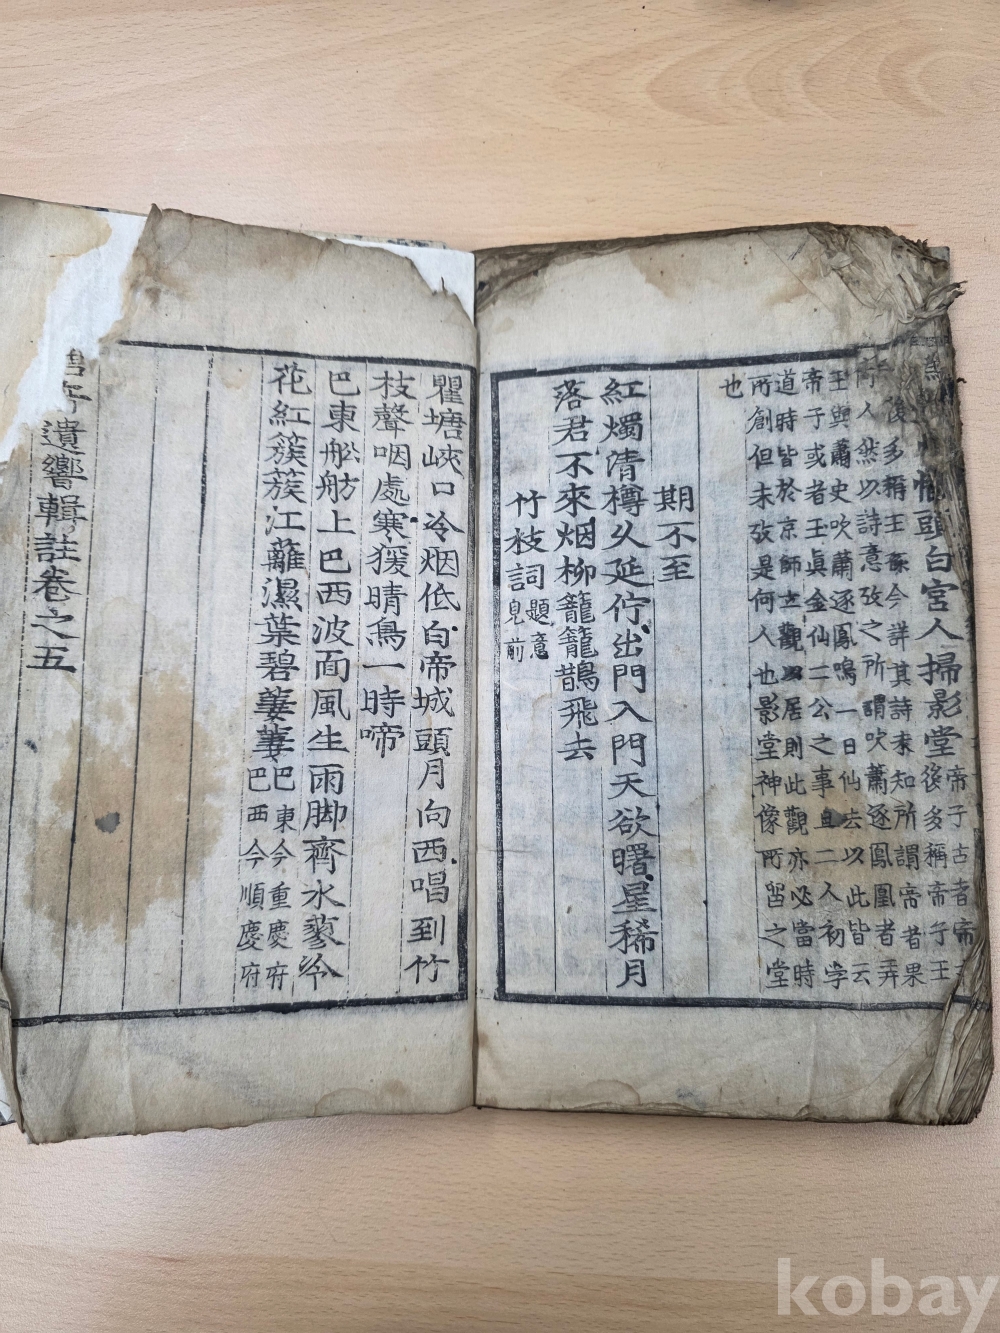 惆悵頭白宮人掃影堂 帝子古者帝王
後多稱帝子王
後多稱王孫今詳其詩未知所謂帝者果
何人然以詩意攷之所謂吹蕭逐鳳凰者弄
王與蕭史吹蕭逐鳳鳴一日仙去以此皆云
帝子或者玉眞金仙二公之事且二人初学
道時皆於京師立觀以居則此觀亦必當時
所創但未攷是何人也影堂神像所留之堂
也
期不至
紅燭清樽久延佇出門入門天欲曙星稀月
落君不來烟柳籠籠鵲飛去
竹枝詞 題意
見前
瞿塘峽口冷烟低白帝城頭月向西唱到竹
枝聲咽處寒猨晴鳥一時啼
巴東舩舫上巴西波面風生雨脚齊水蓼冷
花紅簇簇江蘺濕葉碧萋萋 巴東今重慶府
巴西今順慶府
遺響輯註卷之五
kobay